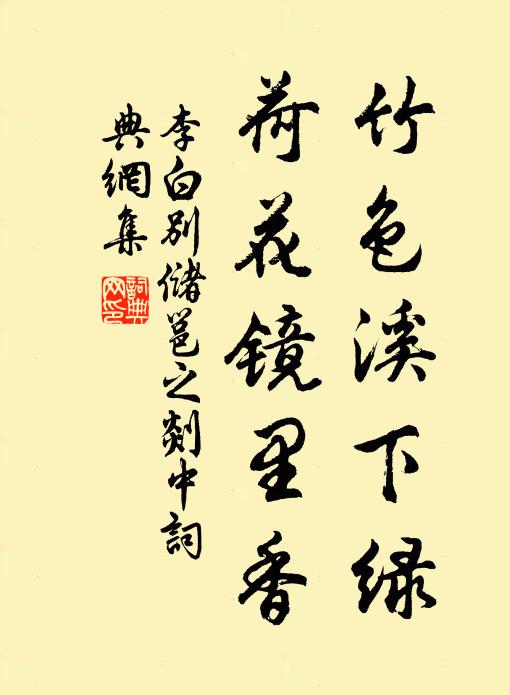 竹色溪下绿
荷花镜里香
李白别儲邕之剡中詞
典網集
詞典
网印